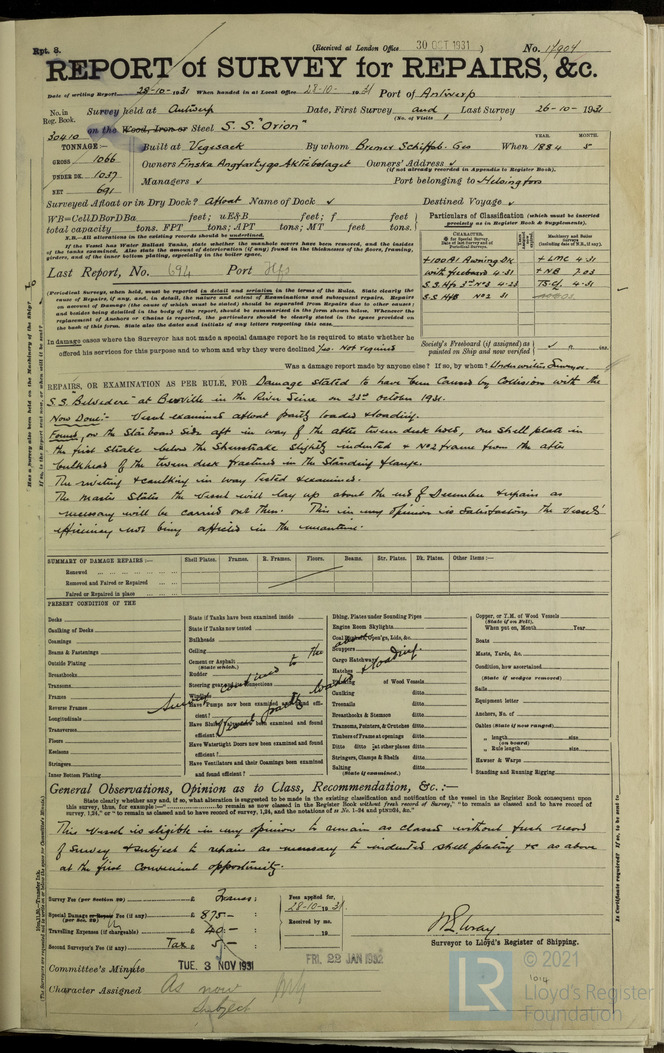 Rpt. 8.
(Received at London Office 30 OCT 1931) No. 11904
REPORT of SURVEY for REPAIRS, &c.
Date of writing Report 28-10-1931 When handed in at Local Office 28-10-1931 Port of Antwerp
No. in Reg. Book. Survey held at Antwerp Date, First Survey and Last Survey 26-10-1931
(No. of Visits 1)
30410 on the Wood, Iron or Steel S.S. "Orion"
TONNAGE:— Built at Vegesack By whom Bremer Schiffb. Ges When 1884 5
YEAR. MONTH.
GROSS 1066
Owners Finska Angfartygs Aktiebolaget Owners' Address
(if not already recorded in Appendix to Register Book).
UNDER DK. 1037
NET 691
Managers Port belonging to Helsingfors
Surveyed Afloat or in Dry Dock? Afloat Name of Dock Destined Voyage
WB=CellDBorDBa feet; uE&B feet; f feet
total capacity tons. FPT tons; APT tons; MT feet tons.
N.B.—All alterations in the existing records should be underlined.
If the Vessel has Water Ballast Tanks, state whether the manhole covers have been removed, and the insides
of the tanks examined. Also state the amount of deterioration (if any) found in the thicknesses of the floors, framing,
girders, and of the inner bottom plating, especially in the boiler space.
Last Report, No. 694 Port Hfs
Particulars of Classification (which must be inserted
precisely as in Register Book & Supplements).
CHARACTER.
Machinery and Boiler
Surveys
(including date of N.B., if any).
+100A1 Awning Dk + LMC 4.31
with freeboard 4.31 + NB 7.03
S.S. Hfs 3rd No3 4-23 TS cf. 4.31
S.S HfB No2 31
(Periodical Surveys, when held, must be reported in detail and seriatim in the terms of the Rules. State clearly the
cause of Repairs, if any, and, in detail, the nature and extent of Examinations and subsequent Repairs. Repairs
on account of Damage (the cause of which must be stated) should be separated from Repairs due to other causes;
and besides being detailed in the body of the report, should be summarized in the form shown below. Whenever the
replacement of Anchors or Chains, is reported, the particulars should be clearly stated in the space provided on
the back of this form. State also the dates and initials of any letters respecting this case.
Society's Freeboard (if assigned) as
painted on Ship and now verified
In damage cases where the Surveyor has not made a special damage report he is required to state whether he
offered his services for this purpose and to whom and why they were declined Yes. Not required
Was a damage report made by anyone else? If so, by whom? Underwriters Surveyor.
REPAIRS, OR EXAMINATION AS PER RULE, FOR Damage stated to have been caused by Collision with the
S.S. "Belvedere" at Berville in the River Seine on 23rd October 1931.
Now Done:- Vessel examined afloat partly loaded & loading.
Found, on the Starboard Side aft in way of the after tween deck hold, one shell plate in
the first strake below the Sheerstrake slightly indented & No2 frame from the after
bulkhead of the tween deck fractured in the standing flange.
The riveting & caulking in way tested & examined.
The master states the vessel will lay up about the end of December & repairs as
necessary will be carried out then. This in my opinion is satisfactory the vessels'
efficiency not being affected in the meantime.
SUMMARY OF DAMAGE REPAIRS:— Shell Plates. Frames. R. Frames. Floors. Beams. Str. Plates. Dk. Plates. Other Items:—
Renewed
Removed and Faired or Repaired
Faired or Repaired in place
PRESENT CONDITION OF THE
Decks
Caulking of Decks
Coamings
Beams & Fastenings
Outside Plating
Breasthooks
Transoms
Frames
Reverse Frames
Longitudinals
Transverses
Floors
Keelsons
Stringers
Inner Bottom Plating
State if Tanks have been examined inside
State if Tanks now tested
Bulkheads
Ceiling
Cement or Asphalt
(State which.)
Rudder
Steering gear and connections
Windlass
Have Pumps now been examined and found effi-
cient?
Have Sluices now been examined and found
efficient?
Have Watertight Doors now been examined and found
efficient?
Have Ventilators and their Coamings been examined
and found efficient?
Survey confined to the above
Vessel partly loaded & loading.
Dblng. Plates under Sounding Pipes
Engine Room Skylights
Coal Bunker Open'gs, Lids, &c.
Scuppers
Cargo Hatchways
Hatches
Planking of Wood Vessels
Caulking ditto
Treenails ditto
Breasthooks & Stemson ditto
Transoms, Pointers, & Crutches ditto
Timbers of Frame at openings ditto
Ditto ditto at other places ditto
Stringers, Clamps & Shelfs ditto
Salting ditto
(State if examined.)
Copper, or Y.M. of Wood Vessels
(State if on Felt).
When put on, Month Year
Boats
Masts, Yards, &c.
Condition, how ascertained
(State if wedges removed)
Sails
Equipment letter
Anchors, No. of
Cables (State if now ranged)
„ length size
(on board)
„ Rule length size
Hawser & Warps
Standing and Running Rigging
General Observations, Opinion as to Class, Recommendation, &c.:—
State clearly whether any and, if so, what alteration is suggested to be made in the existing classification and notification of the vessel in the Register Book consequent upon
this survey, thus, for example:—" to remain as now classed in the Register Book without fresh record of Survey," "to remain as classed and to have record of
survey, 1,24," or "to remain as classed and to have record of survey, 1,24, and the notations of ss No. 1-24 and ptND24, &c."
This Vessel is eligible in my opinion to remain as classed without fresh record
of Survey & subject to repairs as necessary to indented shell plating &c as above
at the first convenient opportunity.
Survey Fee (per Section 29) £ Francs :
Special Damage or Repair Fee (if any) £ 875.— :
(per Sec. 29)
Travelling Expenses (if chargeable) £ 40.— :
Second Surveyor's Fee (if any) Tax £ 5.— :
Fees applied for,
28-10-1931.
Received by me,
19
Surveyor to Lloyd's Register of Shipping.
Committee's Minute TUE. 3 NOV 1931
FRI. 22 JAN 1932
Character Assigned As now
Subject
© 2021
LR
Lloyd's Register
Foundation